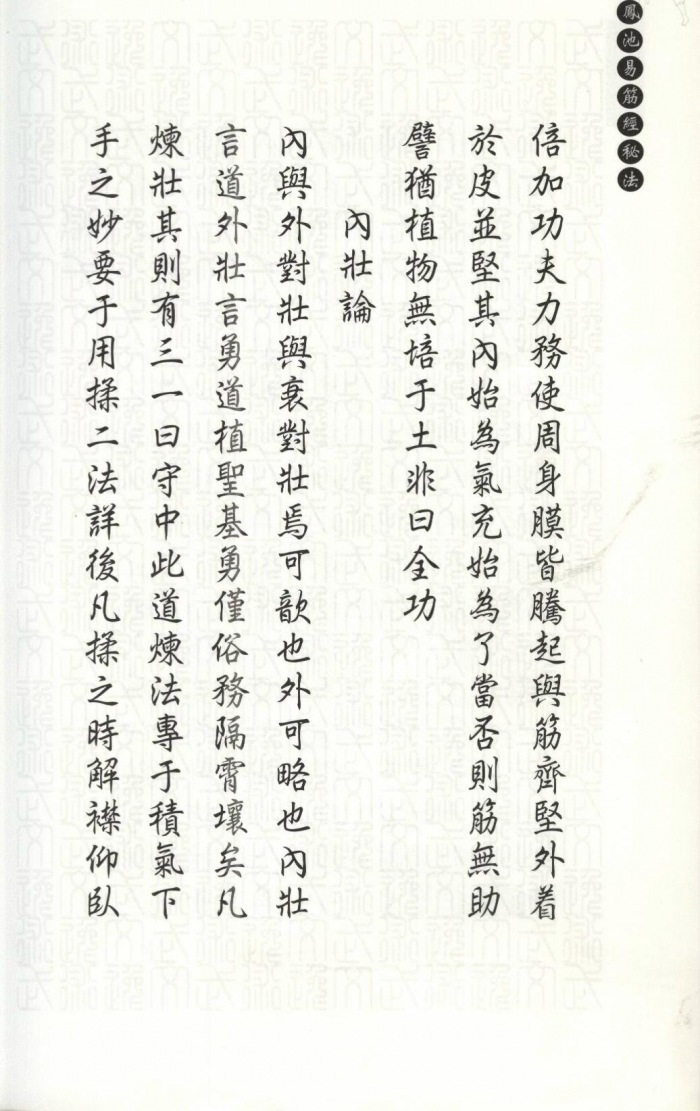 鳳池易筋經秘法
倍加功夫力務使周身膜皆騰起與筋齊堅外着
於皮並堅其內始為氣充始為了當否則筋無助
譬猶植物無培于土非曰全功
內壯論
內與外對壯與衰對壯焉可歆也外可略也內壯
言道外壯言勇道植聖基勇僅俗務隔霄壤矣凡
煉壯其則有三一曰守中此道煉法專于積氣下
手之妙要于用揉二法詳後凡揉之時解襟仰臥